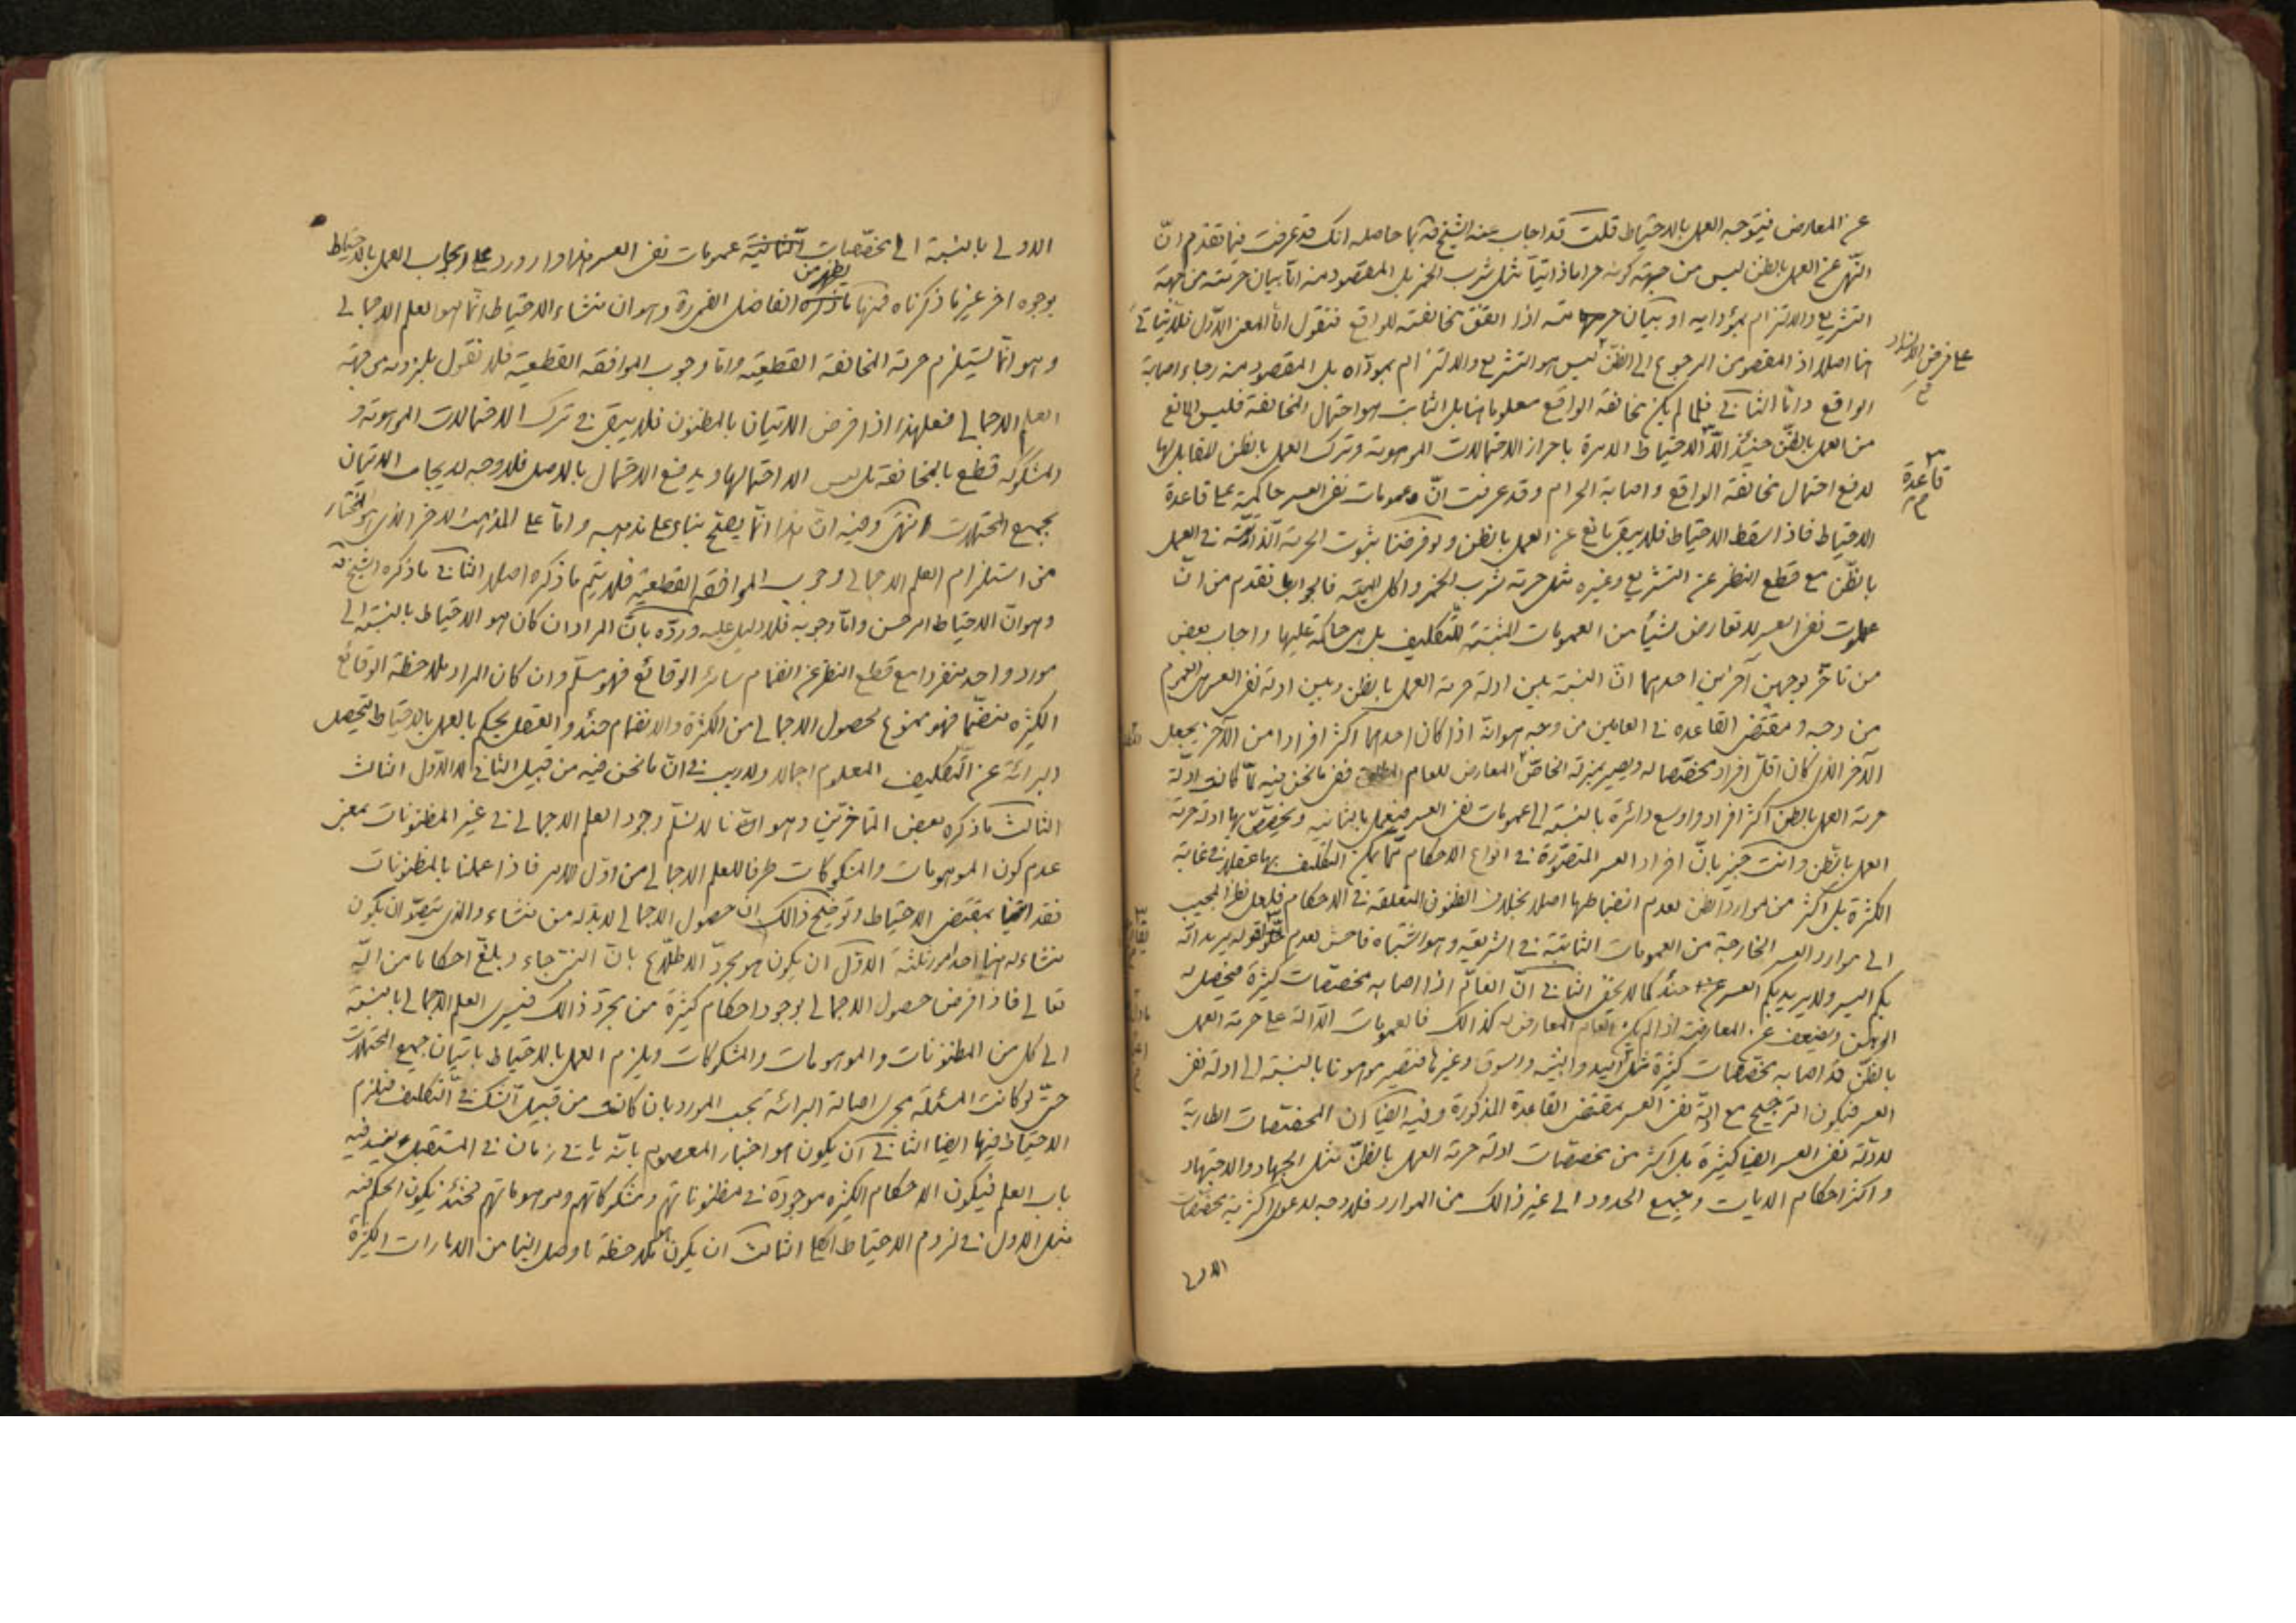 عن المعارض فيتوجه العمل بالاحتياط قلت قد اجاب عنه الشيخ قه بما حاصله انك قد عرفت فيما تقدم انّ
النهى عن العمل بالظن ليس من جهة كونه حراما ذاتيّا مثل شرب الخمر بل المقصود منه امّا بيان حرمته من جهة
التشريع والالتزام بمؤدايه او بيان حرمته اذا اتفق مخالفته للواقع فنقول امّا المعنى الاوّل فلا يتاتى
هنا اصلا اذ المقصود من الرجوع الى الظنّ ليس هو التشريع والالتزام بمؤداه بل المقصود منه رجاء اصابة
على فرض الانسداد
الواقع وامّا الثانى فلما لم يكن مخالفة الواقع معلوما هنا بل الثابت هو احتمال المخالفة فليس المانع
من العمل بالظنّ حينئذ الّا الاحتياط الامرة باحراز الاحتمالات الموهومة وترك العمل بالظن المقابل لها
قاعدة
لدفع احتمال مخالفة الواقع واصابة الحرام وقد عرفت انّ عمومات نفى العسر حاكمة على قاعدة
الاحتياط فاذا سقط الاحتياط فلا يبقى مانع عن العمل بالظن ولو فرضنا ثبوت الحرمة الذاتيّة فى العمل
بالظّن مع قطع النظر عن التشريع وغيره مثل حرمة شرب الخمر واكل الميتة فالجواب ما تقدم من انّ
عمومات نفى العسر لا تعارض شيئا من العمومات المثبتة للتّكليف بل هى حاكمة عليها واجاب بعض
من تاخّر بوجهين آخرين احدهما انّ النسبة بين ادلة حرمة العمل بالظن وبين ادلة نفى العسر هى العموم
من وجه ومقتضى القاعدة فى العامين من وجه هو انّه اذا كان احدهما اكثر افرادا من الآخر يجعل
الآخر الذى كان اقلّ افراد مخصّصا له ويصير بمنزلة الخاصّ المعارض للعام ففى ما نحن فيه لمّا كانت ادلّة
حرمة العمل بالظن اكثر افراد واوسع دائرة بالنسبة الى عمومات نفى العسر فنعمل بالثانية ونخصّص بها ادلة حرمة
العمل بالظن وانت خبير بانّ افراد العسر المتصوّرة فى انواع الاحكام ممّا يمكن التكليف بها عقلا فى غاية
الكثرة بل اكثر من موارد الظن لعدم انضباطها اصلا بخلاف الظنون المتعلقة فى الاحكام فلعل نظر المجيب
الى موارد العسر الخارجة من العمومات الثابتة فى الشريعة وهو اشتباه فاحش لعدم لقوله يريد الله
بكم اليسر ولا يريد بكم العسر حينئذ كما لا يخفى الثانى انّ العامّ اذا اصابه مخصّصات كثيرة فيحصل له
الوهن ويضعف عن المعارضة اذا لم يكن العام المعارض له كذالك فالعمومات الدّالة على حرمة العمل
بالظّن قد اصابه مخصّصات كثيرة مثل اليد والبيّنة والسوق وغيرها فتصير موهونا بالنسبة الى ادلة نفى
العسر فيكون الترجيح مع ادلّة نفى العسر بمقتضى القاعدة المذكورة وفيه ايضا ان المخصّصات الطارية
لادلّة نفى العسر ايضا كثيرة بل اكثر من مخصّصات ادلة حرمة العمل بالظنّ مثل الجهاد والاجتهاد
واكثر احكام الديات وجميع الحدود الى غير ذالك من الموارد فلا وجه لدعوى اكثرية مخصّصات
الاولى
الاولى بالنسبة الى مخصّصات الثانية عمومات نفى العسر هذا وارورد على ايجاب العمل بالاحتياط
بوجوه اخر غير ما ذكرناه فمنها ما يظهر من الفاضل القمى وهو ان منشاء الاحتياط انّما هو العلم الاجمالى
وهو انّما يستلزم حرمة المخالفة القطعية وامّا وجوب الموافقة القطعية فلا نقول بلزومه من جهة
العلم الاجمالى فعلى هذا اذا فرض الاتيان بالمظنون فلا يبقى فى ترك الاحتمالات الموهومة و
المشكوكه قطع بالمخالفة بل ليس الا احتمالها ويدفع الاحتمال بالاصل فلا وجه لايجاب الاتيان
بجميع المحتملات انتهى وفيه انّ هذا انّما يصحّ بناء على مذهبه وامّا على المذهب الاخر الذى هو المختار
من استلزام العلم الاجمالى وجوب الموافقة القطعية فلا يتم ما ذكره اصلا الثانى ما ذكره الشيخ قه
وهو انّ الاحتياط امر حسن وامّا وجوبه فلا دليل عليه وردّه بانّ المراد ان كان هو الاحتياط بالنسبة الى
مورد واحد منفردا مع قطع النظر عن انضمام سائر الوقائع فهو مسلّم وان كان المراد ملاحظة الوقائع
الكثيره منضمّا فهو ممنوع لحصول الاجمالى من الكثرة والانضمام حينئذ والعقل يحكم بالعمل بالاحتياط لتحصل
البرائة عن التّكليف المعلوم اجمالا ولا ريب فى انّ ما نحن فيه من قبيل الثانى لا الاوّل الثالث
الثالث ما ذكره بعض المتاخرين وهو انّا لا نسلّم وجود العلم الاجمالى فى غير المظنونات بمعنى
عدم كون الموهومات والمشكوكات طرفا للعلم الاجمالى من اوّل الامر فاذا عملنا بالمظنونات
فقد اتينا بمقتضى الاحتياط وتوضيح ذالك ان حصول الاجمالى لا بدّ له من منشاء والذى يتصوّر ان يكون
منشاء له هنا احد امور ثلثة الاوّل ان يكون هو مجرّد الاطلاع بانّ النبى جاء وبلغ احكاما من الله
تعالى فاذا فرض حصول الاجمالى بوجود احكام كثيرة من مجرّد ذالك فيسرى العلم الاجمالى بالنسبة
الى كل من المظنونات والموهومات والمشكوكات ويلزم العمل بالاحتياط باتيان جميع المحتملات
حتّى لو كانت المسئلة مجرى اصالة البرائة بحسب المورد بان كانت من قبيل الشك فى التّكليف فيلزم
الاحتياط فيها ايضا الثانى ان يكون هو اخبار المعصوم بانّه ياتى زمان فى المستقبل ينسدّ فيه
باب العلم فيكون الاحكام الكثيره موجودة فى مظنوناتهم ومشكوكاتهم وموهوماتهم فحينئذ يكون الحكم فيه
مثل الاول فى لزوم الاحتياط الثالث ان يكون ملاحظة ما وصل الينا من الامارات الكثيرة